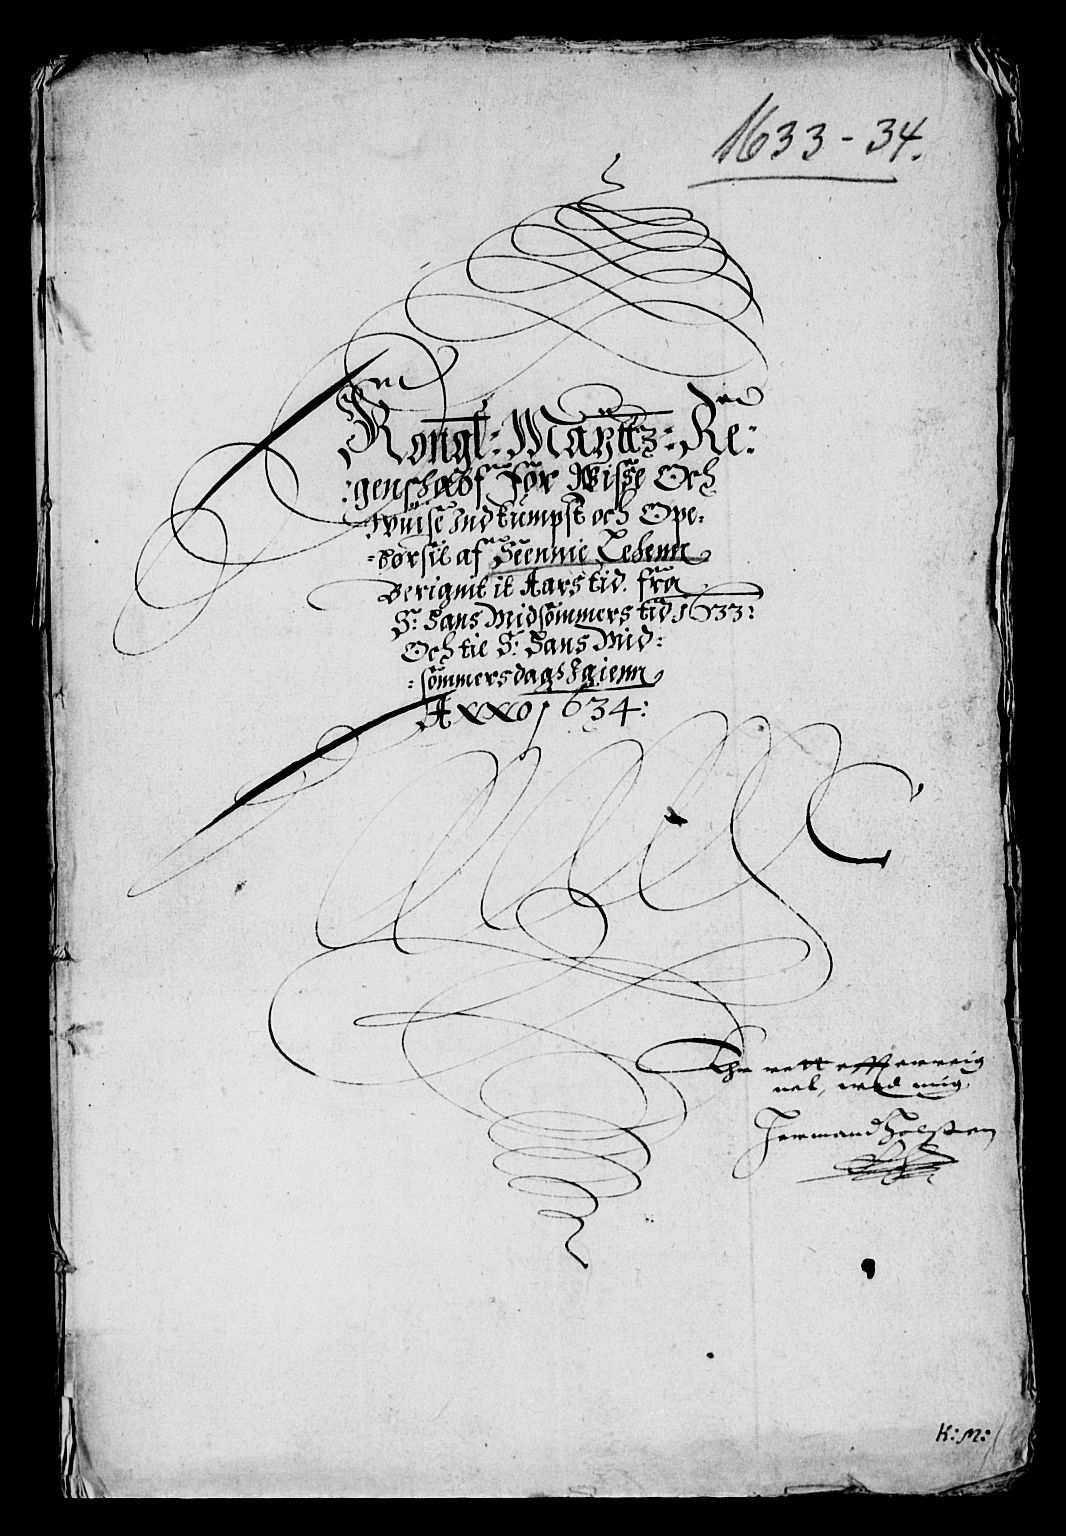 1633-34.
Kongl: Maÿttz: Re:
:genschab för Wisse Och
Wuise Indkumpst och Ope:
-börsil af Steennie Lehenn
Berignit it Aars tid. fra
St: Hans Midsommers tid 1633:
Och til St: Hans Mid:
:sommersdag Igienn
Anno 1634:
rett
med mig.
Hermand Holsten
K: M: